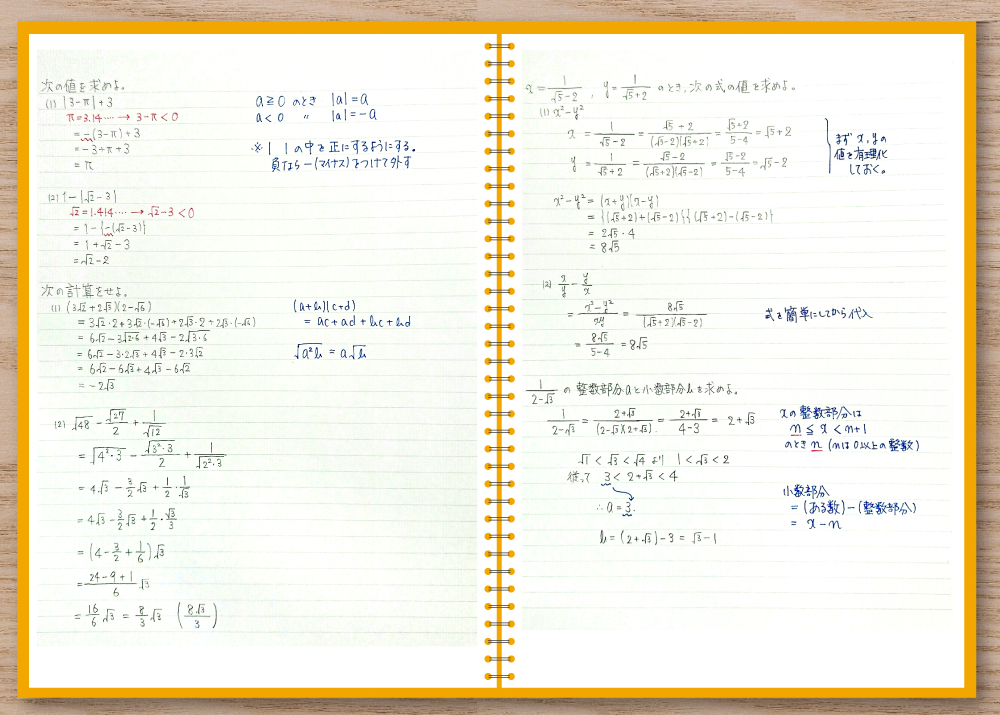 次の値を求めよ。
(1) |3-π|+3
π=3.14‥‥→ 3-π<0
= -(3-π)+3
= -3+π+3
= π
a≧0 のとき |a|=a
a<0 〃 |a|=-a
※ | | の中を正にするようにする。
負なら-(マイナス)をつけて外す
(2) 1-|√2-3|
√2=1.414‥‥→ √2-3<0
= 1-{-(√2-3)}
= 1+√2-3
= √2-2
次の計算をせよ。
(1) (3√2+2√3)(2-√6)
= 3√2・2+3√2・(-√6)+2√3・2+2√3・(-√6)
= 6√2-3√2・6+4√3-2√3・6
= 6√2-3・2√3+4√3-2・3√2
= 6√2-6√3+4√3-6√2
= -2√3
(a+b)(c+d)
= ac+ad+bc+bd
√a²b = a√b
(2) √48 - √27/2 + 1/√12
= √4²・3 - √3²・3/2 + 1/√2²・3
= 4√3 - 3/2√3 + 1/2・1/√3
= 4√3 - 3/2√3 + 1/2・√3/3
= (4-3/2+1/6)√3
= 24-9+1/6 √3
= 16/6√3 = 8/3√3 (8√3/3)
x=1/√5-2 , y=1/√5+2 のとき、次の式の値を求めよ。
(1) x²-y²
x = 1/√5-2 = √5+2/(√5-2)(√5+2) = √5+2/5-4 = √5+2
y = 1/√5+2 = √5-2/(√5+2)(√5-2) = √5-2/5-4 = √5-2
まず x,yの
値を有理化
しておく。
x²-y² = (x+y)(x-y)
= {(√5+2)+(√5-2)}{(√5+2)-(√5-2)}
= 2√5・4
= 8√5
(2) x/y - y/x
= x²-y²/xy = 8√5/(√5+2)(√5-2)
= 8√5/5-4 = 8√5
式を簡単にしてから代入
1/2-√3 の 整数部分aと小数部分bを求めよ。
1/2-√3 = 2+√3/(2-√3)(2+√3) = 2+√3/4-3 = 2+√3
√1<√3<√4 より 1<√3<2
従って 3<2+√3<4
∴ a=3.
b=(2+√3)-3=√3-1
xの整数部分は
n≦x<n+1
のとき n (nは0以上の整数)
小数部分
= (ある数)-(整数部分)
= x-n